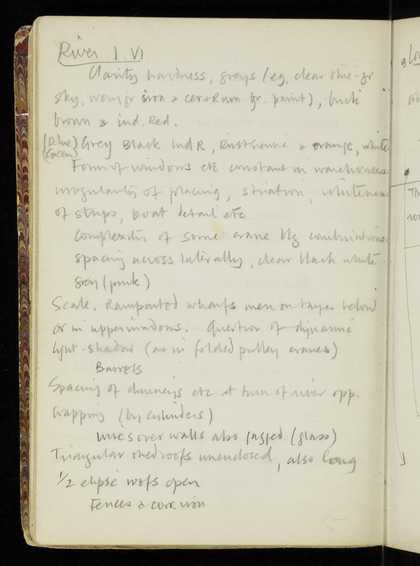 River I VI
Clarity hardness, grays (eg. clear blue-gr
sky, warm gr iron & corr iron gr. paint), buck
brown & ind. Red.
(Blue) (Green) Grey Black Ind R, & orange, white
Form of windows etc constant in warehouses
irregularity of placing, striation, whiteness
of strips, boat detail etc
Complexity of some crane bldg combinations
spacing across laterally, clear black white
gray (pink)
Scale. Ramparted wharfs men on below
or in upper windows. Question of dynamic
light-shadow (as in folded pulley cranes)
Barrels
Spacing of chimneys etc at turn of river opp.
Wapping (by cylinders)
Wires over walls also jagged (glass)
Triangular shed roofs unenclosed, also long
1/2 elipse roofs open
Fences & corr iron